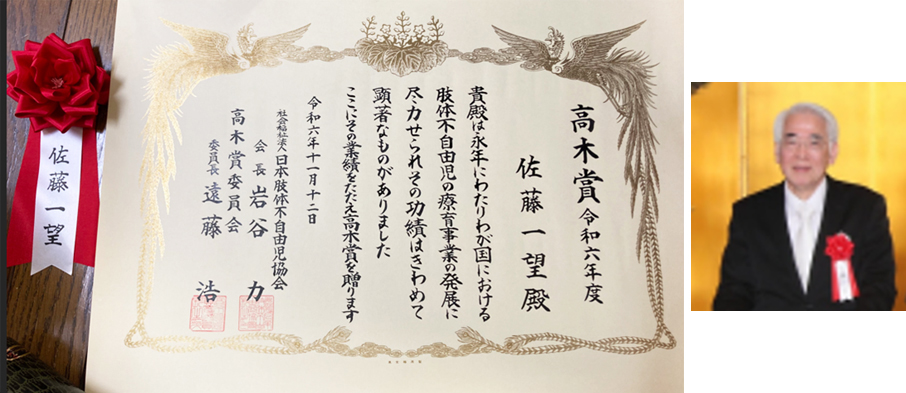 高木賞 令和六年度
佐藤一望殿
貴殿は永年にわたりわが国における
肢体不自由児の療育事業の発展に
尽力せられその功績はきわめて
顕著なものがありました
ここにその業績をたたえ高木賞を贈ります
令和六年十一月十二日
社会福祉法人 日本肢体不自由児協会
会長 岩谷 力
高木賞委員会
委員長 遠藤 浩
佐藤一望